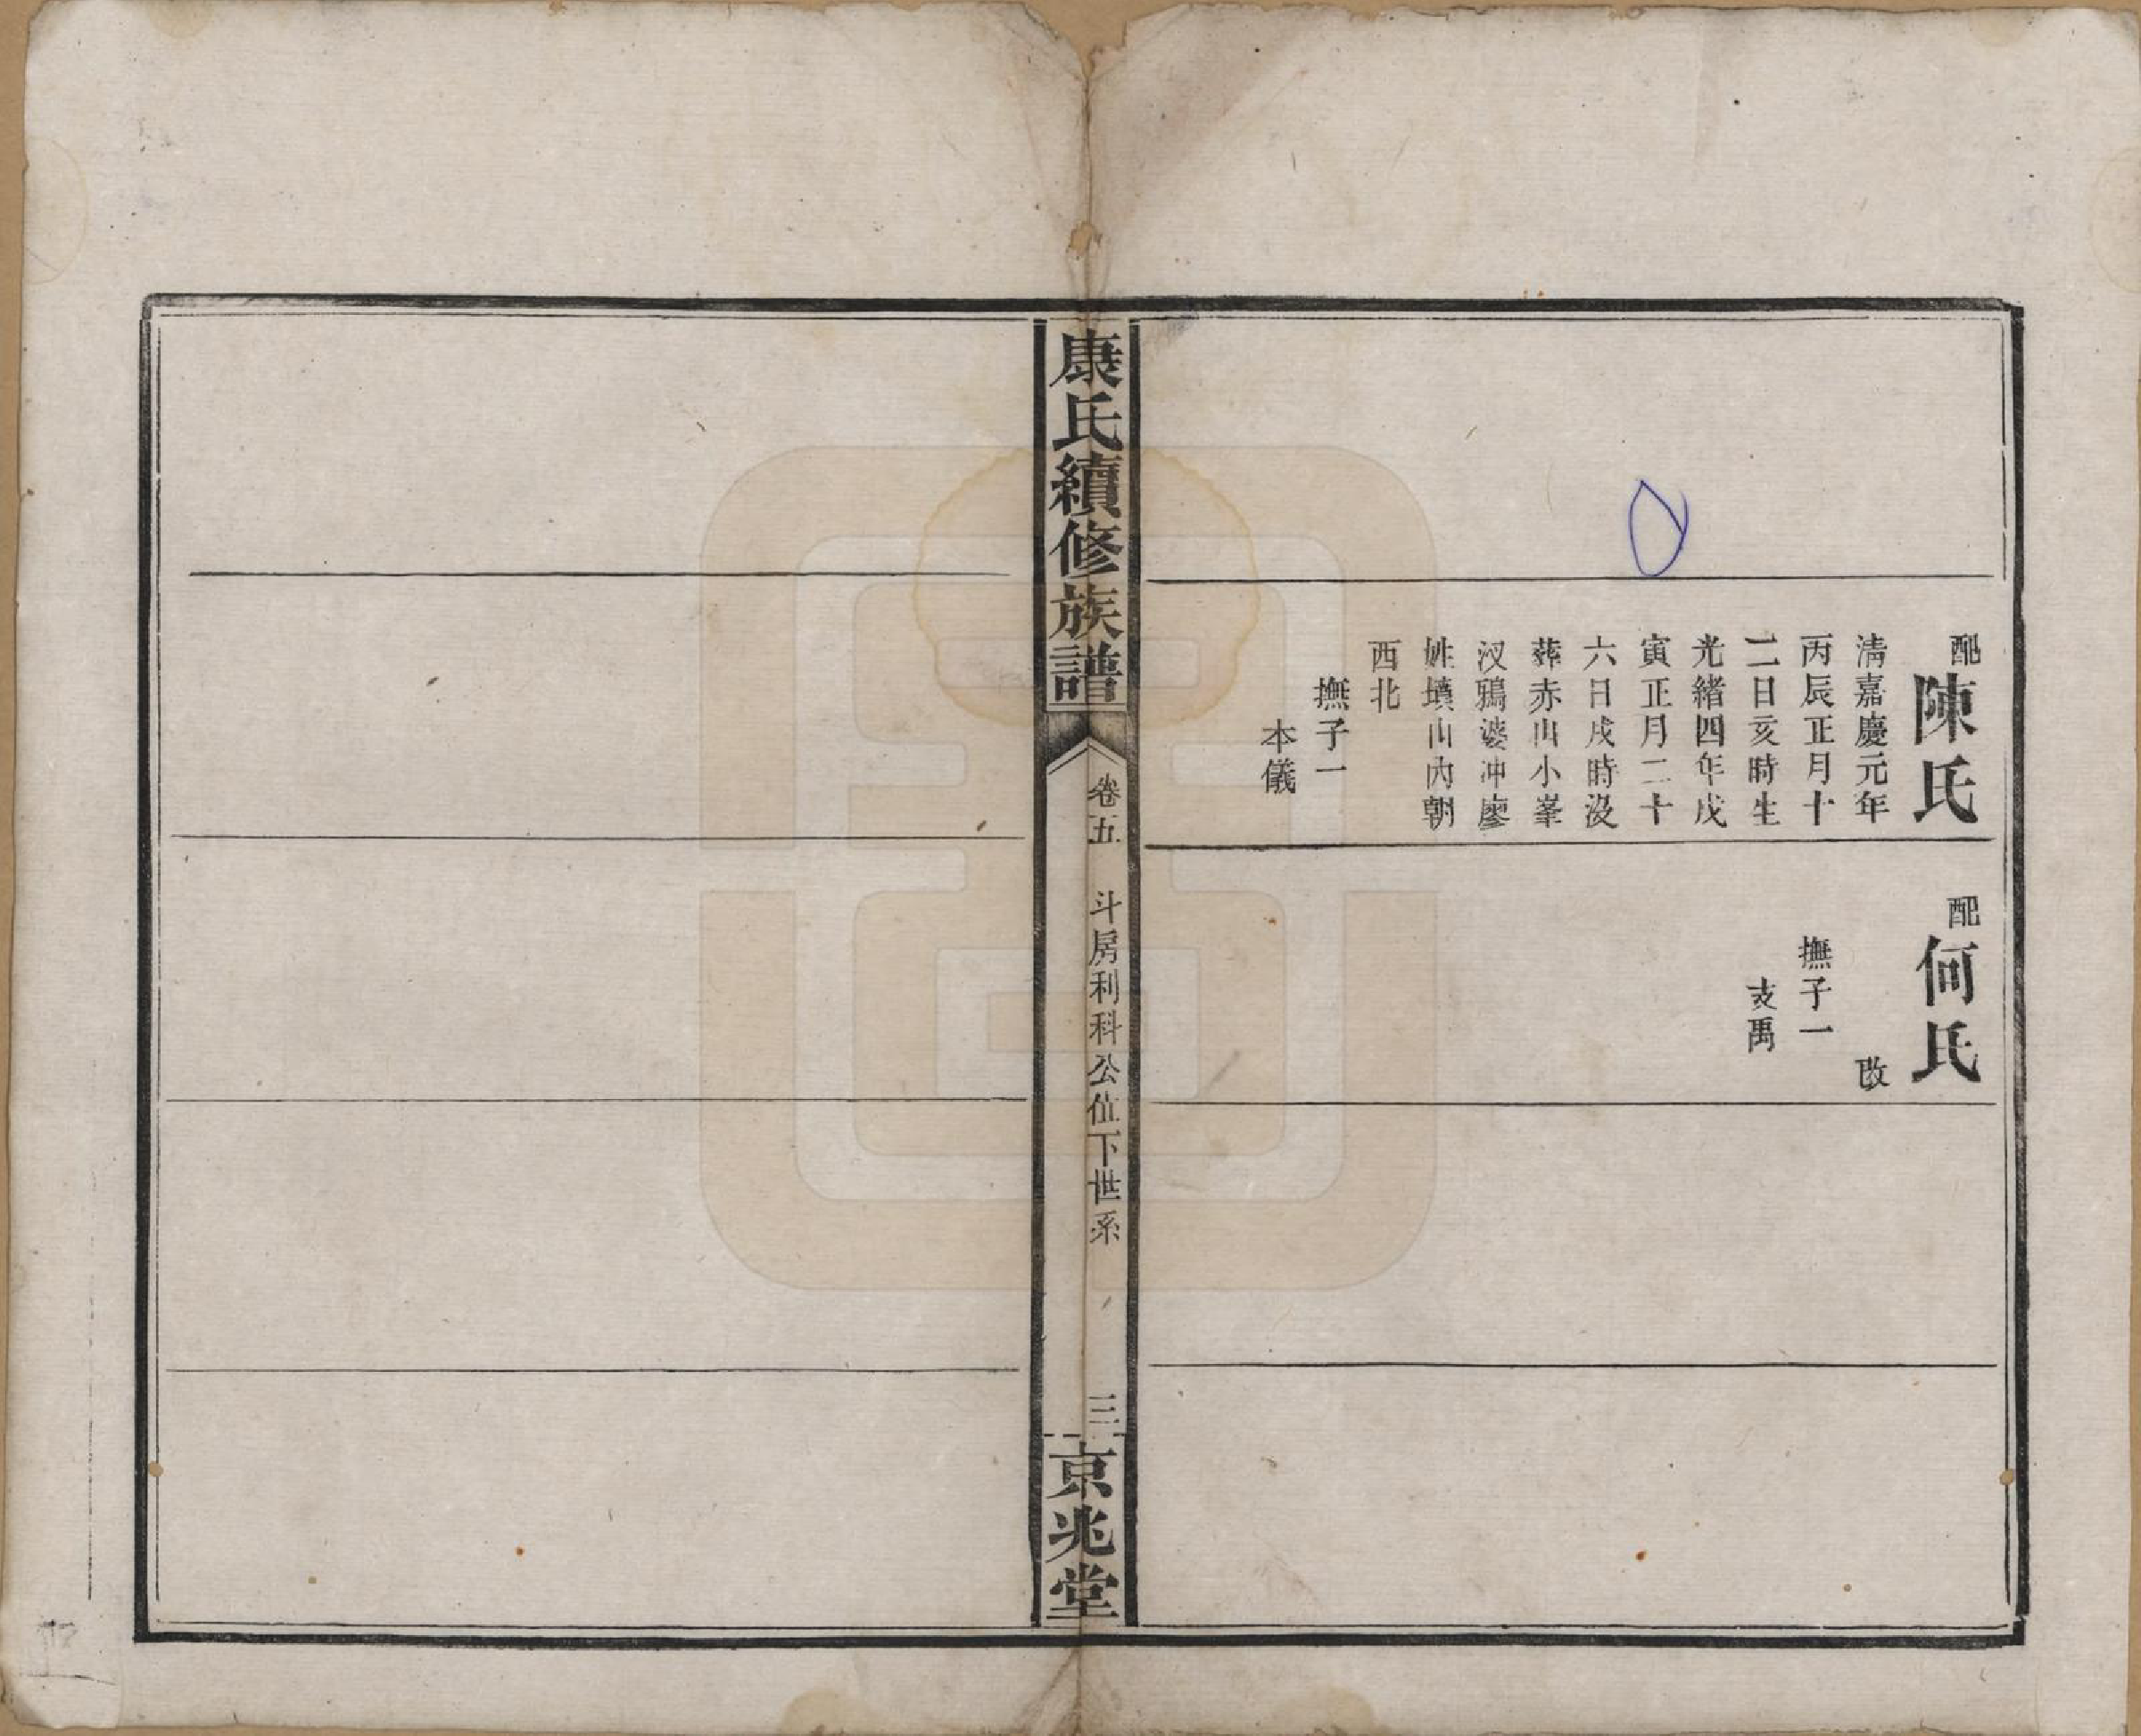 配陳氏
清嘉慶元年
丙辰正月十
二日亥時生
光緒四年戊
寅正月二十
六日戌時沒
葬赤山小峯
汊鴉婆冲廖
姓墳山內朝
西北
撫子一
本儀
配何氏
改
撫子一
支禹
康氏續修族譜
卷五
斗房利科公位下世系
三
京兆堂